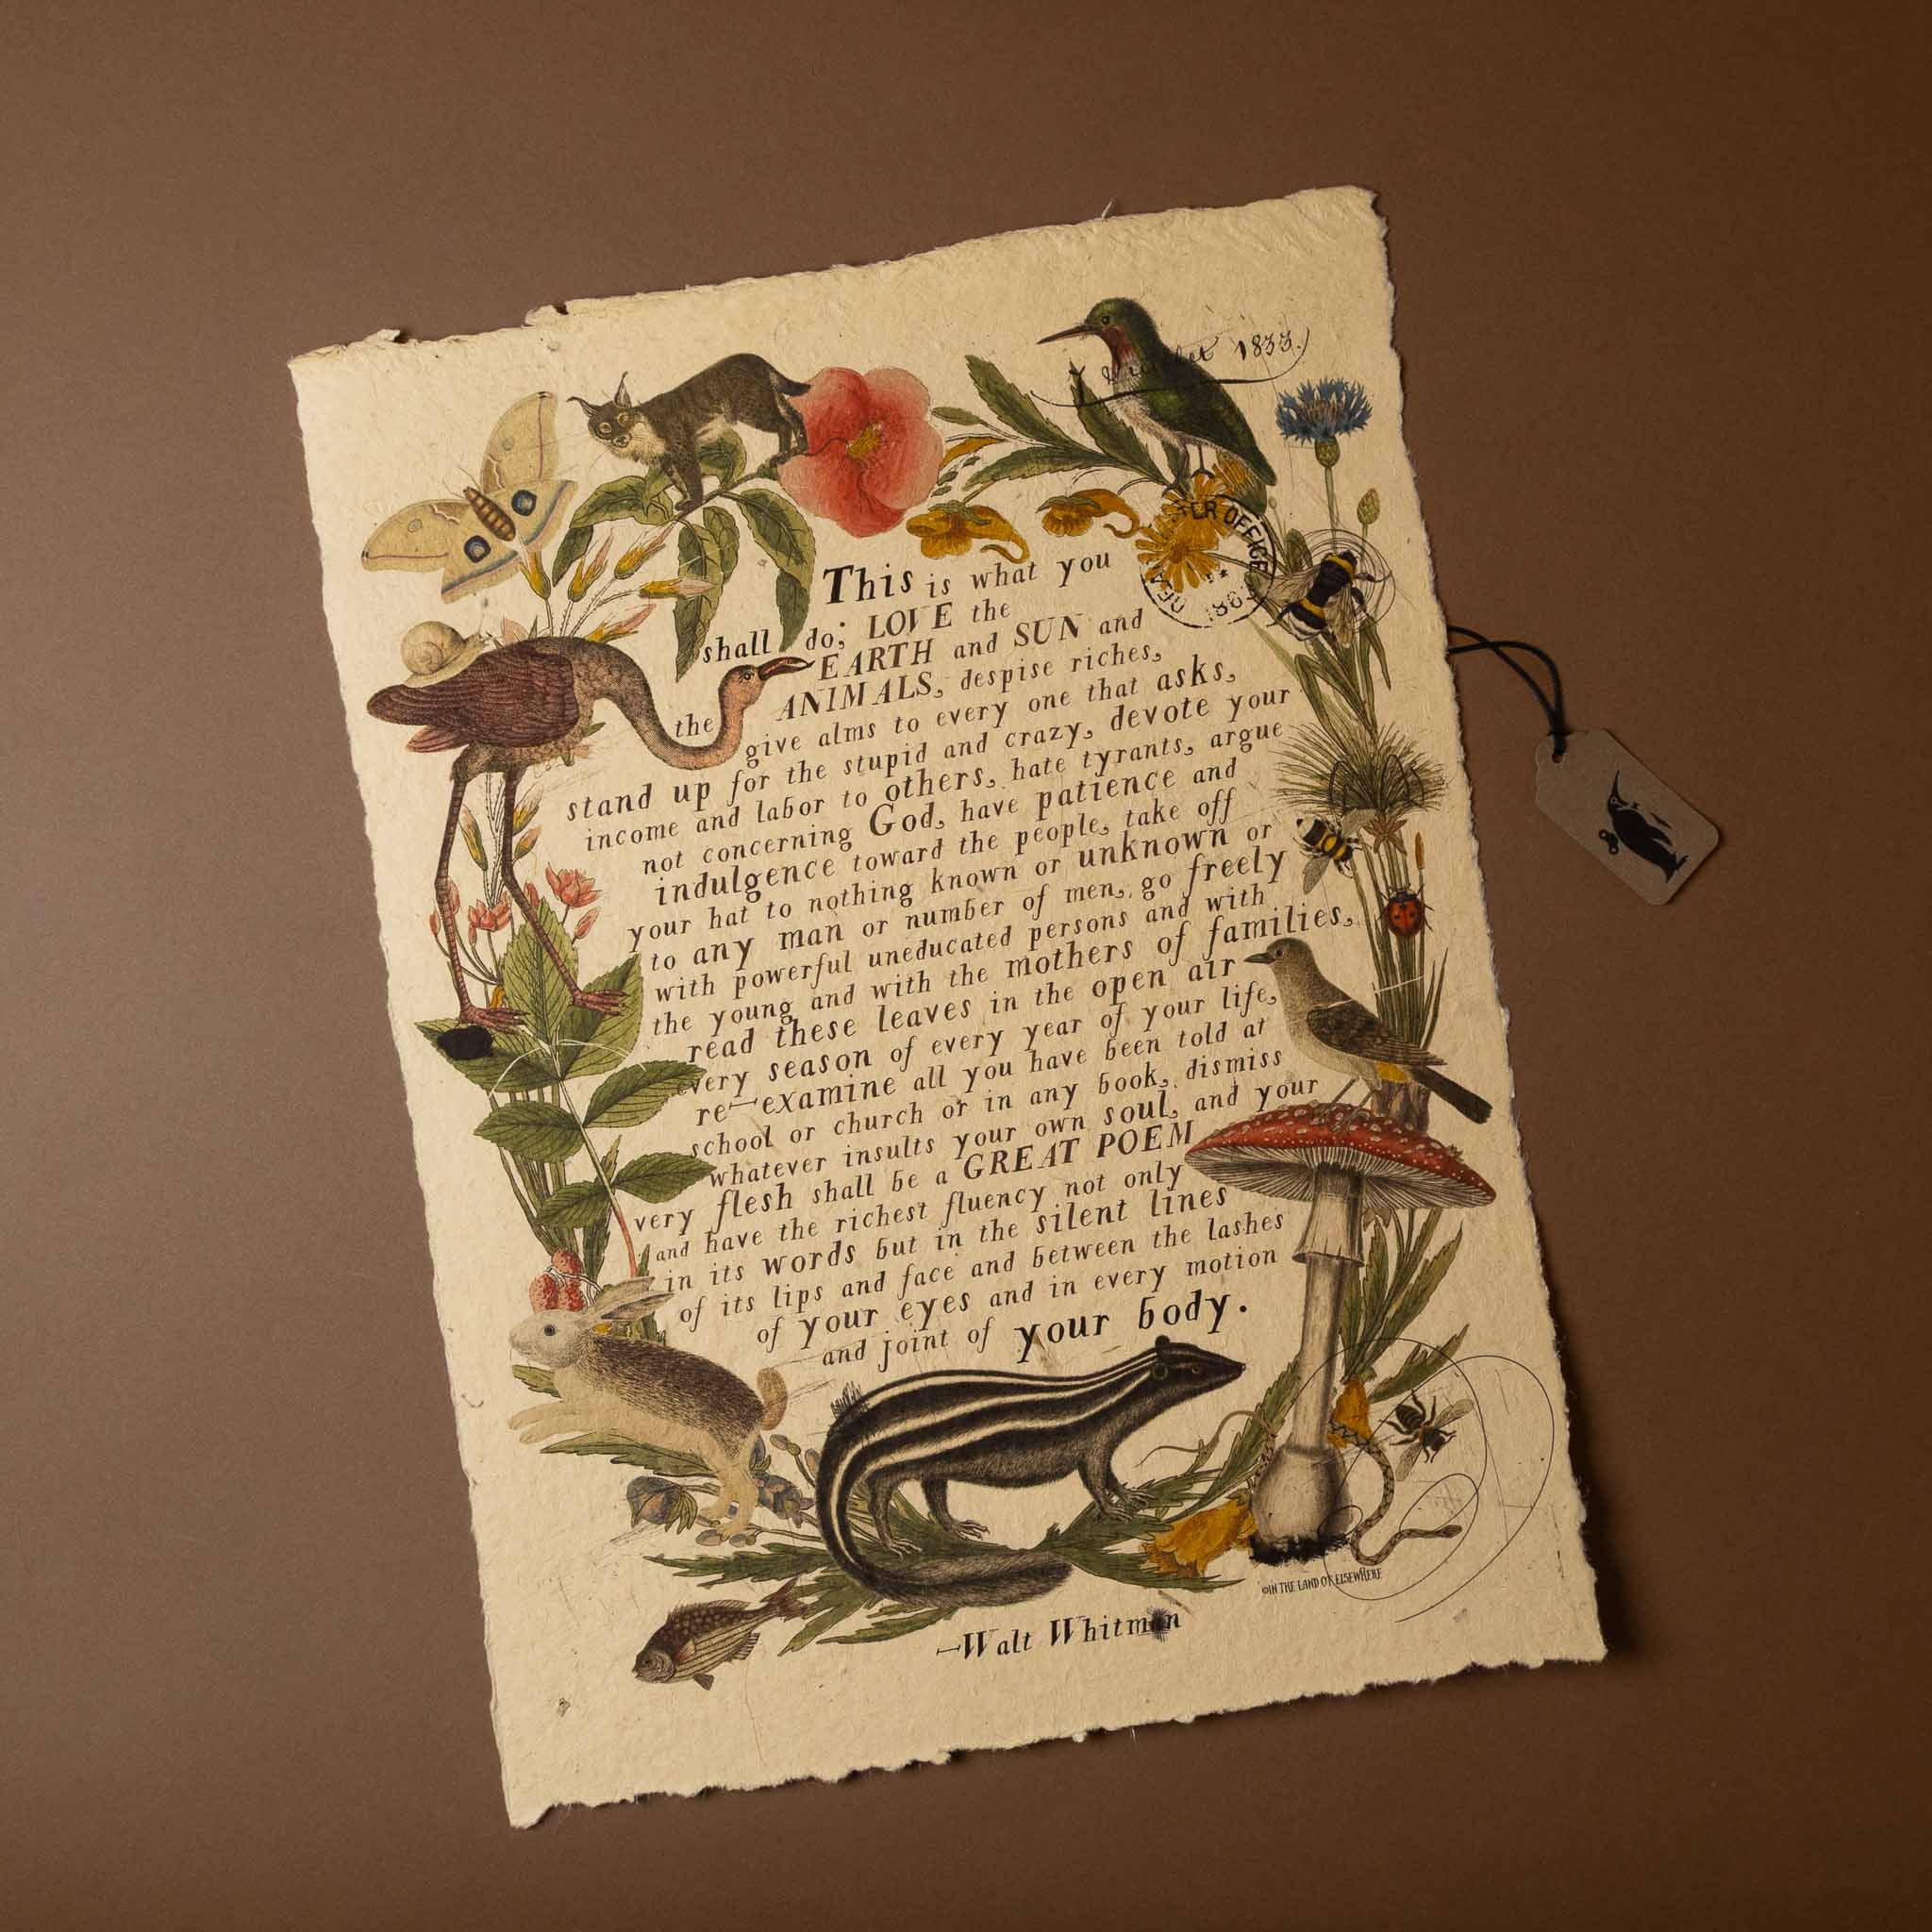 1833.
LR OFFICE
This is what you
shall do; LOVE the
EARTH and SUN and
the ANIMALS, despise riches,
give alms to every one that asks,
stand up for the stupid and crazy, devote your
income and labor to others, hate tyrants, argue
not concerning God, have patience and
indulgence toward the people, take off
your hat to nothing known or unknown or
to any man or number of men, go freely
with powerful uneducated persons and with
the young and with the mothers of families,
read these leaves in the open air
every season of every year of your life,
re-examine all you have been told at
school or church or in any book, dismiss
whatever insults your own soul, and your
very flesh shall be a GREAT POEM
and have the richest fluency not only
in its words but in the silent lines
of its lips and face and between the lashes
of your eyes and in every motion
and joint of your body.
©IN THE LAND OF ELSEWHERE
—Walt Whitman